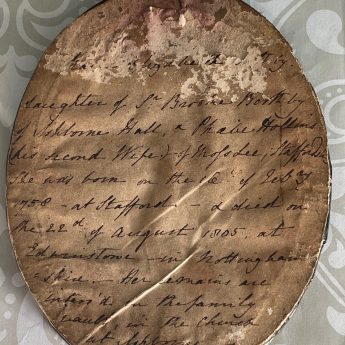 Elizabeth
daughter of Sr Brooke Boothby
of Ashborne Hall, & Phœbe Hollins
his second Wife, of Mosslee, Staffords
She was born on the of Feby
1758 - at Stafford - & died on
the 22d of August 1805, at
Edwinstowe - in Nottingham
shire. Her remains are
interr'd in the family
vault, in the Church
at Ashborne